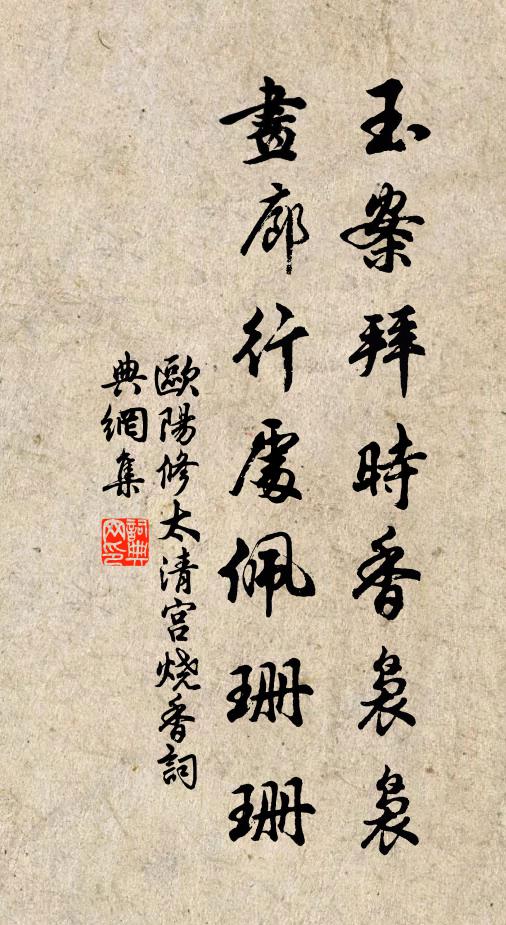 玉案拜時香裊裊
畫廊行處佩珊珊
歐陽修太清宮燒香詞
典網集
詞典網印